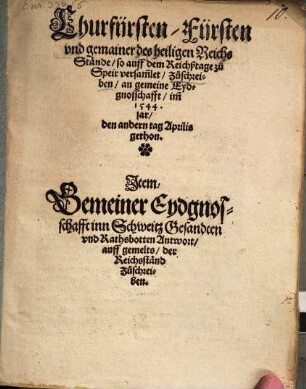 Churfürsten / Fürsten
vnd gemainer des heiligen Reichs
Stände / so auff dem Reichßtage zu
Speir versamlet / Zůschrei-
den / an gemeine Eyd-
gnosschafft / im
1544.
jar /
den andern tag Aprilis
gethon.
Item /
Gemeiner Eydgnos-
schafft inn Schweitz Gesandten
vnd Rathsbotten Antwort /
auff gemelts / der
Reichsständ
Zůschrei-
ben.
10.